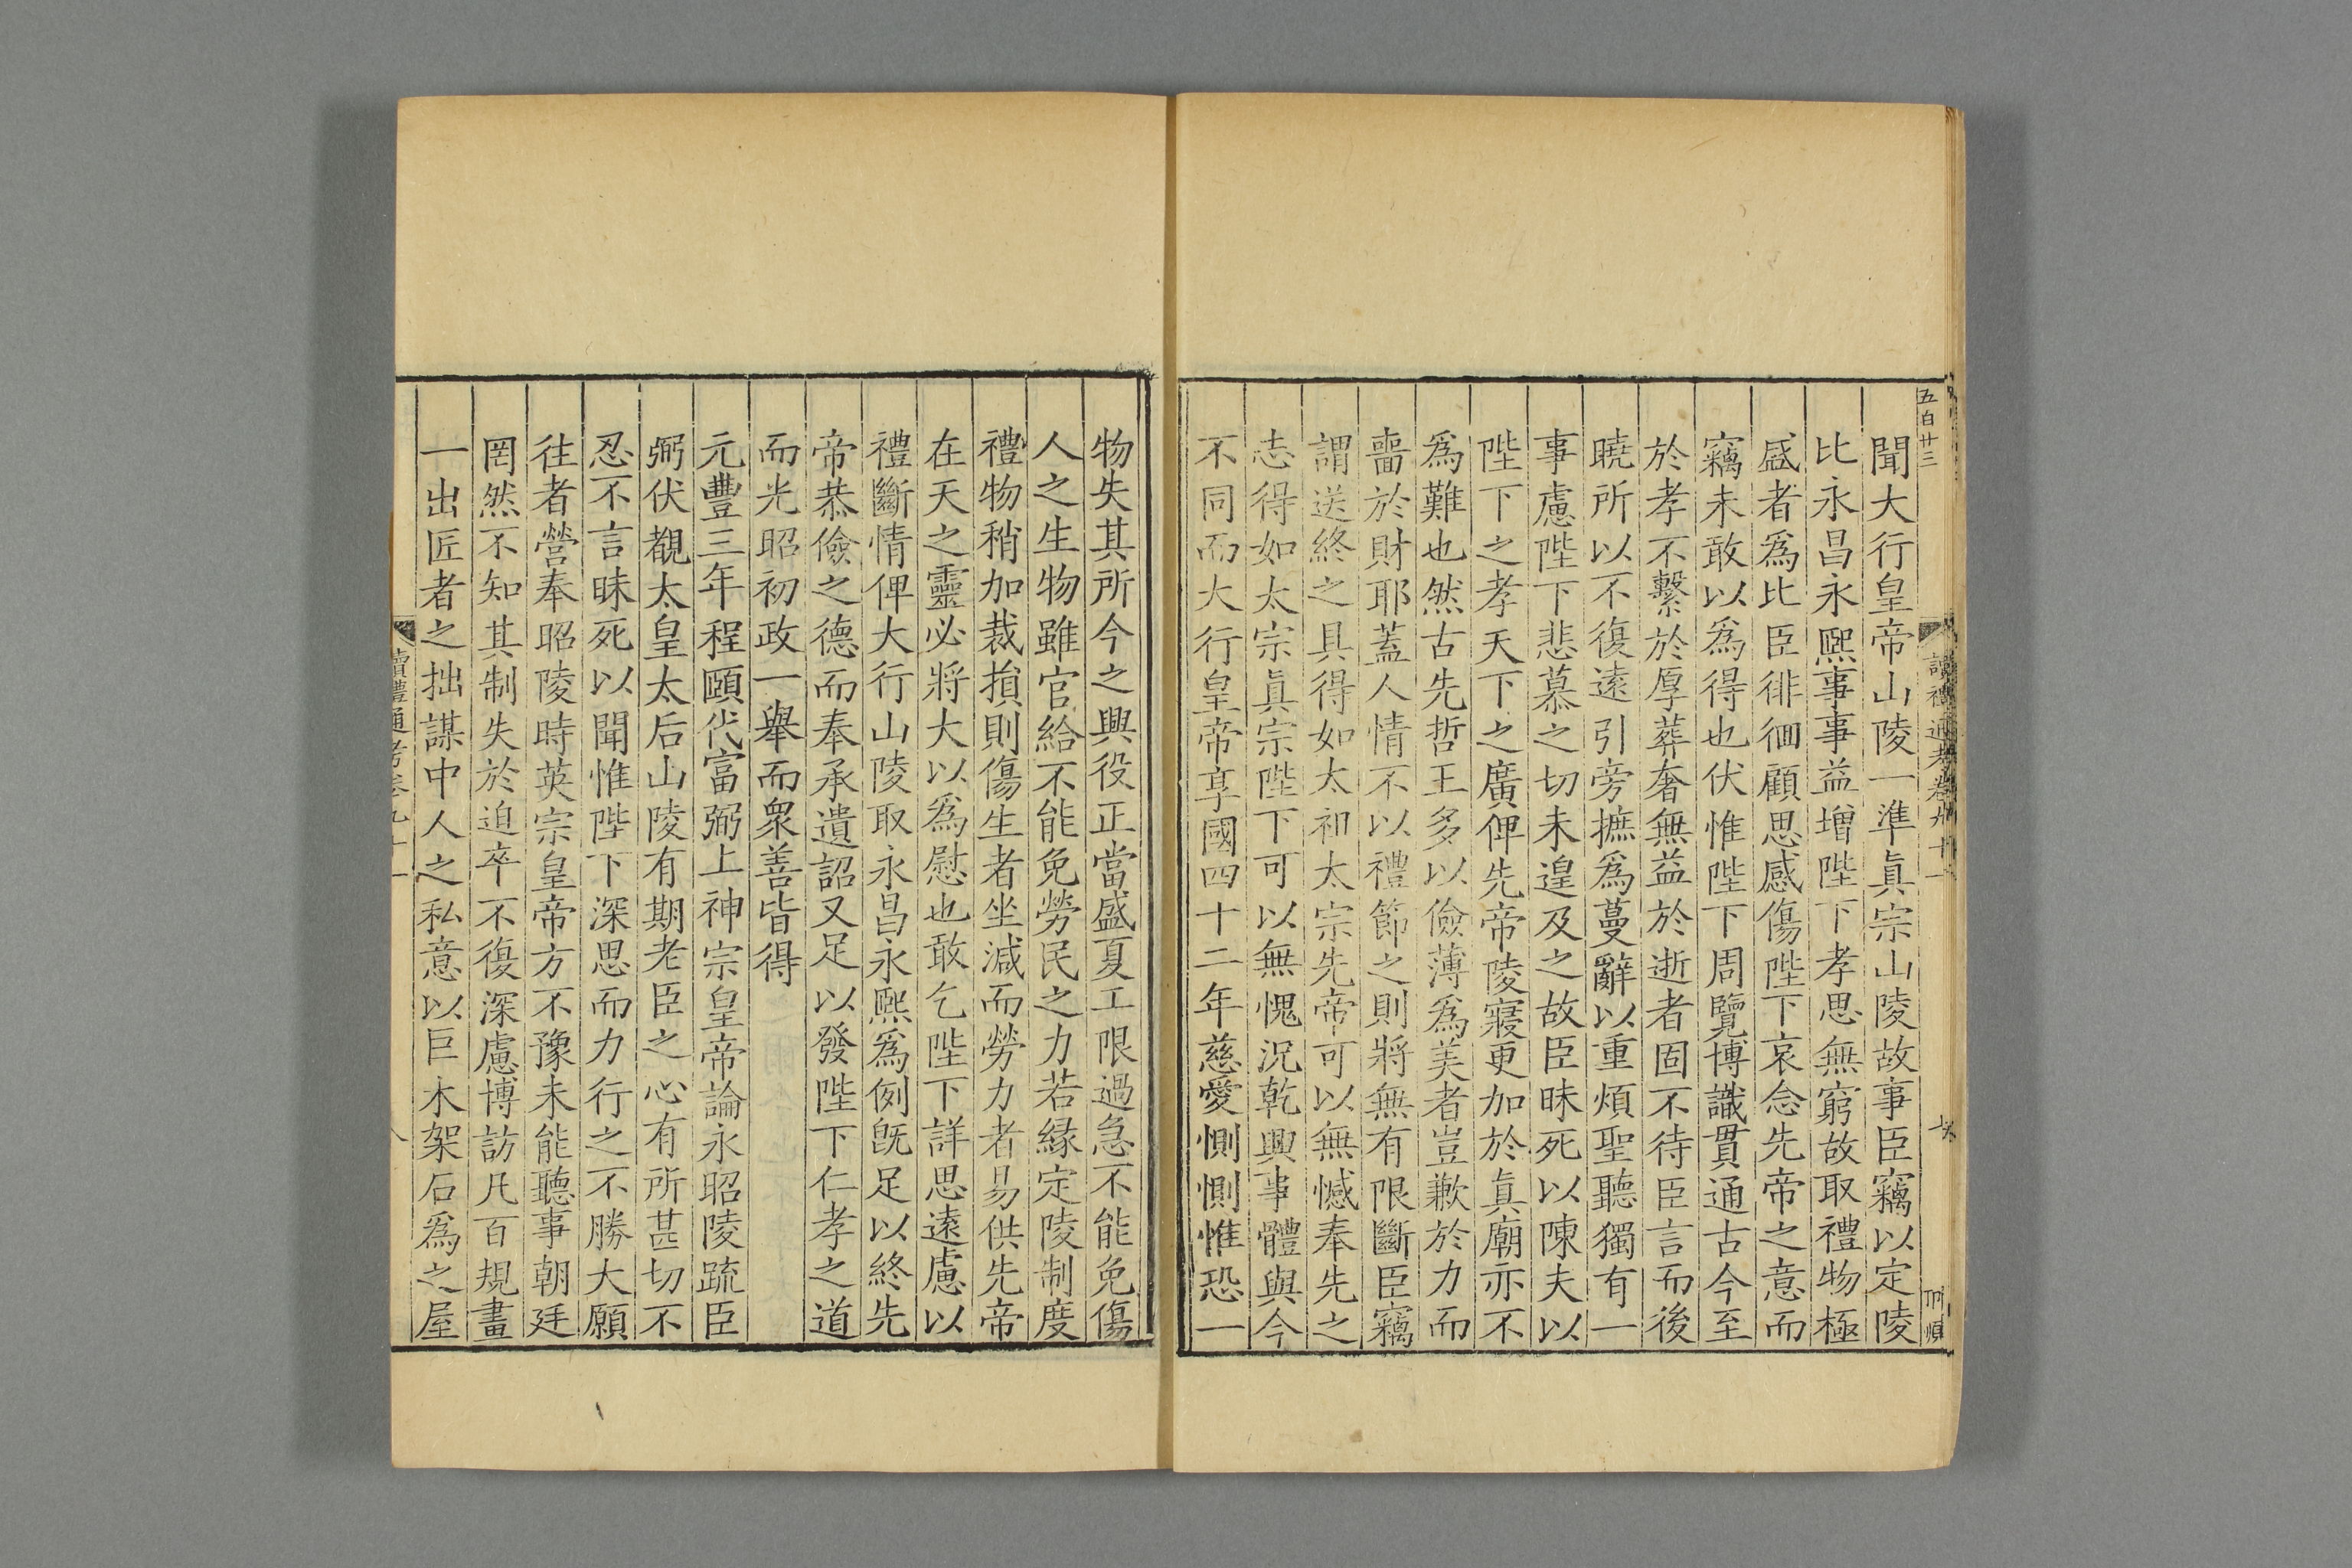 五百廿三
讀禮通考卷九十一
聞大行皇帝山陵一準眞宗山陵故事臣竊以定陵
比永昌永熙事事益增陛下孝思無窮故取禮物極
盛者爲比臣徘徊顧思感傷陛下哀念先帝之意而
竊未敢以爲得也伏惟陛下周覽博識貫通古今至
於孝不繫於厚葬奢無益於逝者固不待臣言而後
曉所以不復遠引旁摭爲蔓辭以重煩聖聽獨有一
事慮陛下悲慕之切未遑及之故臣昧死以陳夫以
陛下之孝天下之廣俾先帝陵寢更加於眞廟亦不
爲難也然古先哲王多以儉薄爲美者豈歉於力而
嗇於財耶蓋人情不以禮節之則將無有限斷臣竊
謂送終之具得如太祖太宗先帝可以無憾奉先之
志得如太宗眞宗陛下可以無愧況乾興事體與今
不同而大行皇帝享國四十二年慈愛惻惻惟恐一
物失其所今之興役正當盛夏工限過急不能免傷
人之生物雖官給不能免勞民之力若緣定陵制度
禮物稍加裁損則傷生者坐減而勞力者易供先帝
在天之靈必將大以爲慰也敢乞陛下詳思遠慮以
禮斷情俾大行山陵取永昌永熙爲例旣足以終先
帝恭儉之德而奉承遺詔又足以發陛下仁孝之道
而光昭初政一舉而衆善皆得
元豐三年程頤代富弼上神宗皇帝論永昭陵疏臣
弼伏覩太皇太后山陵有期老臣之心有所甚切不
忍不言昧死以聞惟陛下深思而力行之不勝大願
往者營奉昭陵時英宗皇帝方不豫未能聽事朝廷
罔然不知其制失於迫卒不復深慮博訪凡百規畫
一出匠者之拙謀中人之私意以巨木架石爲之屋
讀禮通考卷九十一
八